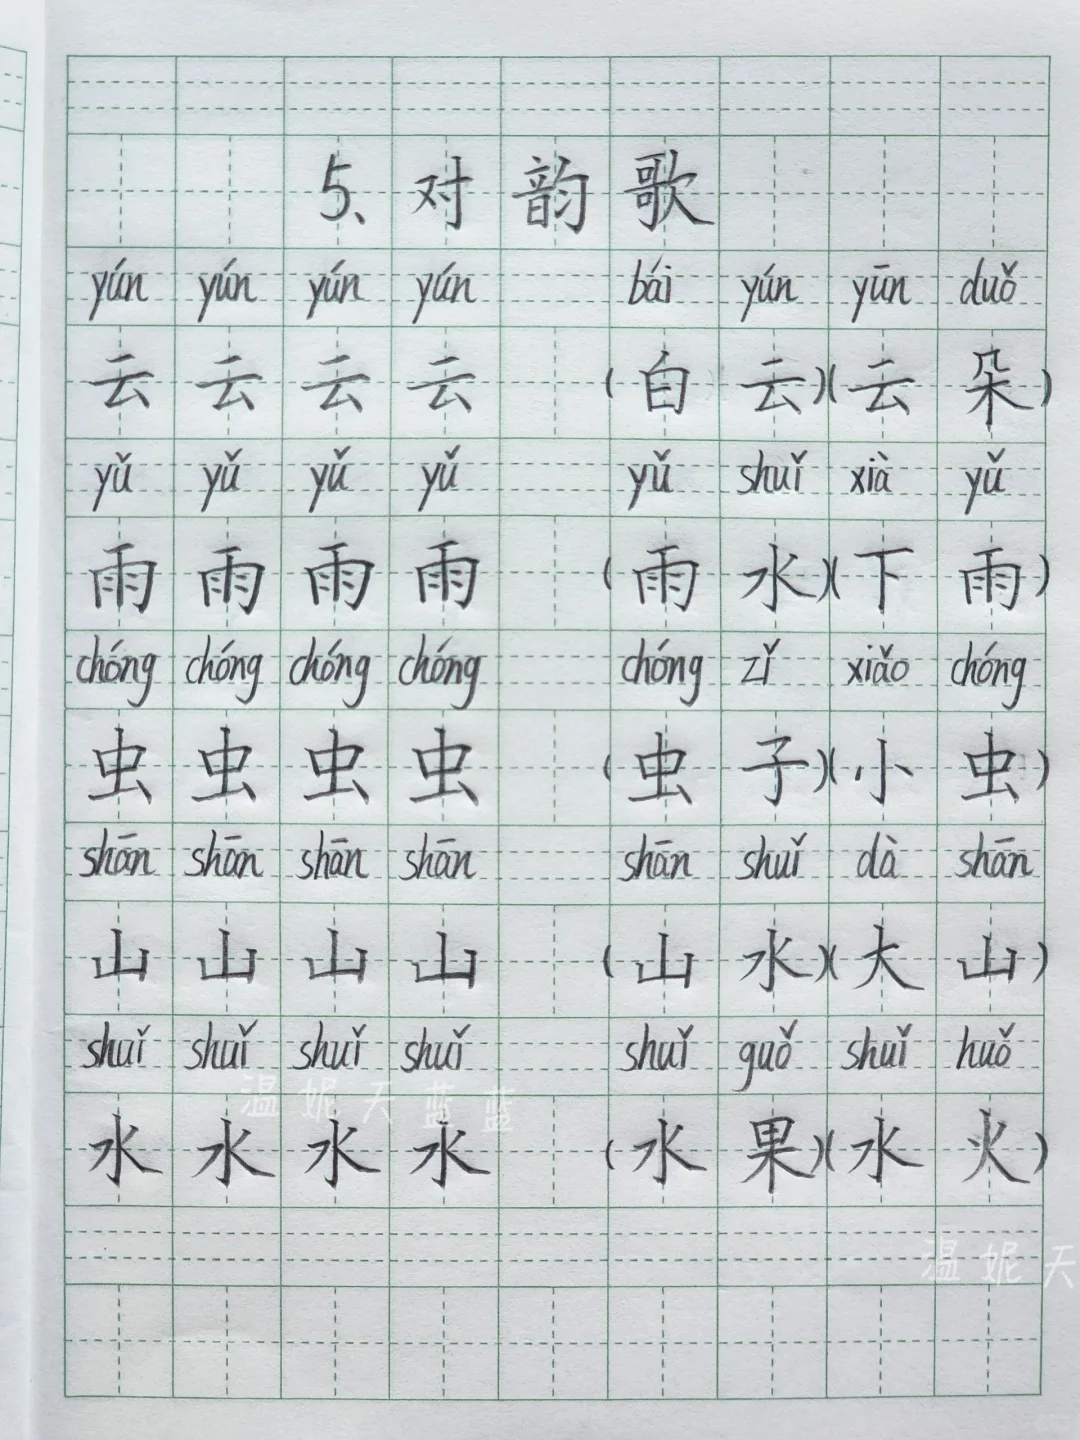 5、对韵歌
yún yún yún yún bái yún yūn duǒ
云 云 云 云 (白云)(云朵)
yǔ yǔ yǔ yǔ yǔ shuǐ xià yǔ
雨 雨 雨 雨 (雨水)(下雨)
chóng chóng chóng chóng chóng zǐ xiǎo chóng
虫 虫 虫 虫 (虫子)(小虫)
shān shān shān shān shān shuǐ dà shān
山 山 山 山 (山水)(大山)
shuǐ shuǐ shuǐ shuǐ shuǐ guǒ shuǐ huǒ
温妮天蓝蓝
水 水 水 水 (水果)(水火)
温妮天